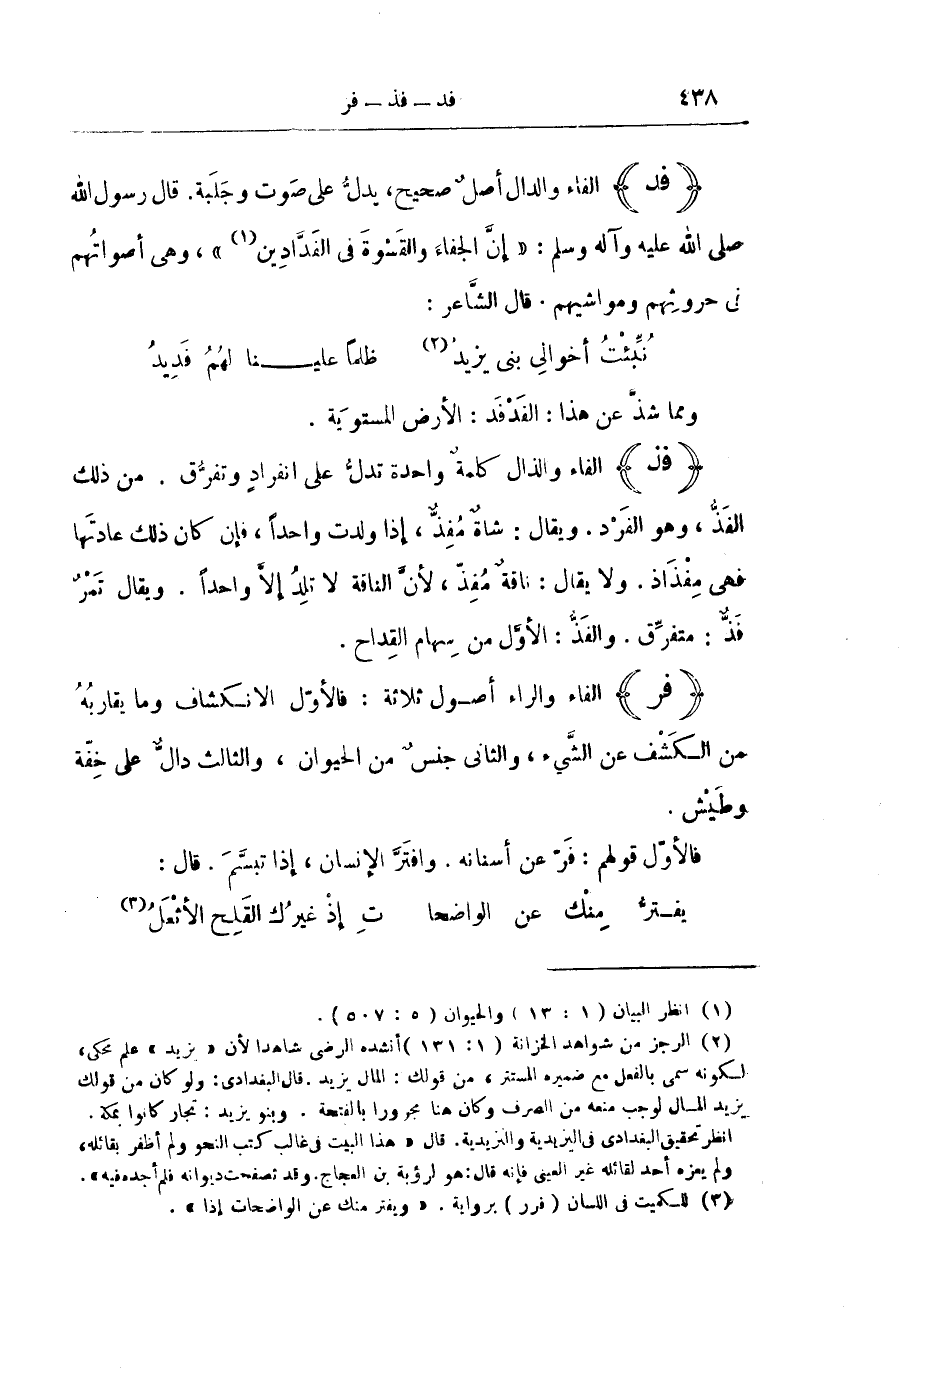 ٤٣٨ فد – فذ – فر
﴿ فد ﴾ الفاء والدال أصلٌ صحيح، يدلُّ على صَوت وجَلَبة. قال رسول الله
صلى الله عليه وآله وسلم : « إنَّ الجفاءَ والقَسْوةَ فى الفَدَّادِين(١) » ، وهى أصواتُهم
فى حروثهم ومواشيهم . قال الشَّاعر :
نُبِّئْتُ أخوالِي بنى يزيدُ(٢) ظلمًا علينــا لهُمُ فَدِيدُ
ومما شذَّ عن هذا : الفَدْفَد : الأرض المستوِية .
﴿ فذ ﴾ الفاء والذال كلمةٌ واحدة تدلُّ على انفرادٍ وتفرُّق . من ذلك
الفَذُّ ، وهو الفَرْد . ويقال : شاةٌ مُفِذٌّ ، إذا ولدت واحداً ، فإن كان ذلك عادتَها
فهى مِفْذَاذ . ولا يقال : ناقةٌ مُفِذّ ، لأنَّ الناقة لا تلِدُ إلاَّ واحداً . ويقال تَمْرٌ
فَذٌّ : متفرِّق . والفَذُّ : الأوَّل من سِهام القِداح .
﴿ فر ﴾ الفاء والراء أصـول ثلاثة : فالأوّل الانـكشاف وما يقاربُهُ
من الـكَشْف عن الشَّيء ، والثانى جنسٌ من الحيوان ، والثالث دالٌّ على خِفّة
وطَيْش .
فالأوّل قولهم : فَرّ عن أسنانه . وافتَرَّ الإنسان ، إذا تبسَّمَ . قال :
يفـترُّ مِنْك عن الواضحا تِ إذْ غيرُك القَلِح الأثْعَلُ(٣)
(١) انظر البيان ( ١ : ١٣ ) والحيوان ( ٥ : ٥٠٧ ) .
(٢) الرجز من شواهد الخزانة ( ١ : ١٣١ ) أنشده الرضى شاهدا لأن « يزيد » علم محكى،
لـكونه سمى بالفعل مع ضميره المستتر ، من قولك : المال يزيد . قال البغدادى: ولو كان من قولك
يزيد المـال لوجب منعه من الصرف وكان هنا مجرورا بالفتحة . وبنو يزيد : تجار كانوا بمكة .
انظر تحقيق البغدادى فى اليزيدية والتزيدية. قال « هذا البيت فى غالب كتب النحو ولم أظفر بقائله،
ولم يعزه أحد لقائله غير العينى فإنه قال: هو لرؤبة بن العجاج. وقد تصفحت ديوانه فلم أجده فيه» .
(٣) للـكميت فى اللسان ( فرر ) برواية . « ويفتر منك عن الواضحات إذا » .